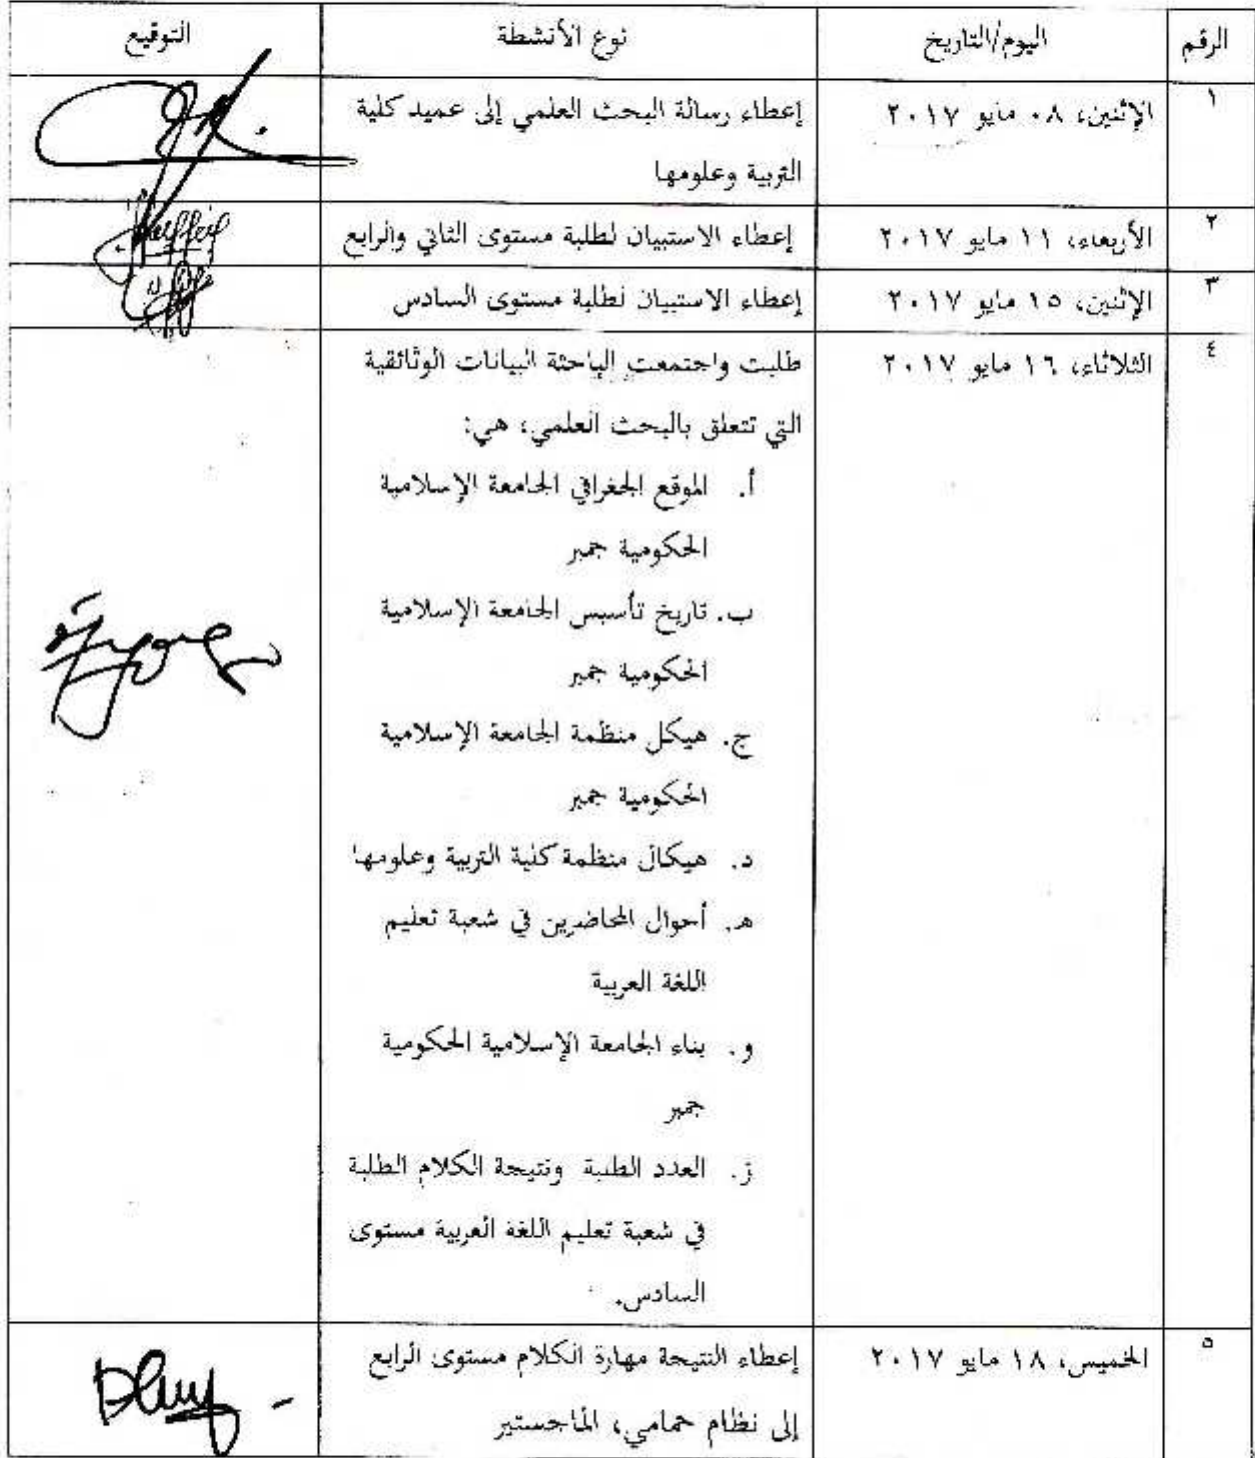 الرقم اليوم/التاريخ نوع الأنشطة التوقيع
١ الإثنين، ٠٨ مايو ٢٠١٧ إعطاء رسالة البحث العلمي إلى عميد كلية
التربية وعلومها
٢ الأربعاء، ١١ مايو ٢٠١٧ إعطاء الاستبيان لطلبة مستوى الثاني والرابع
٣ الإثنين، ١٥ مايو ٢٠١٧ إعطاء الاستبيان لطلبة مستوى السادس
٤ الثلاثاء، ١٦ مايو ٢٠١٧ طلبت واجتمعت الباحثة البيانات الوثائقية
التي تتعلق بالبحث العلمي، هي:
أ. الموقع الجغرافي الجامعة الإسلامية
الحكومية جمبر
ب. تاريخ تأسيس الجامعة الإسلامية
الحكومية جمبر
ج. هيكل منظمة الجامعة الإسلامية
الحكومية جمبر
د. هيكال منظمة كلية التربية وعلومها
هـ. أحوال المحاضرين في شعبة تعليم
اللغة العربية
و. بناء الجامعة الإسلامية الحكومية
جمبر
ز. العدد الطلبة ونتيجة الكلام الطلبة
في شعبة تعليم اللغة العربية مستوى
السادس.
٥ الخميس، ١٨ مايو ٢٠١٧ إعطاء النتيجة مهارة الكلام مستوى الرابع
إلى نظام حمامي، الماجستير